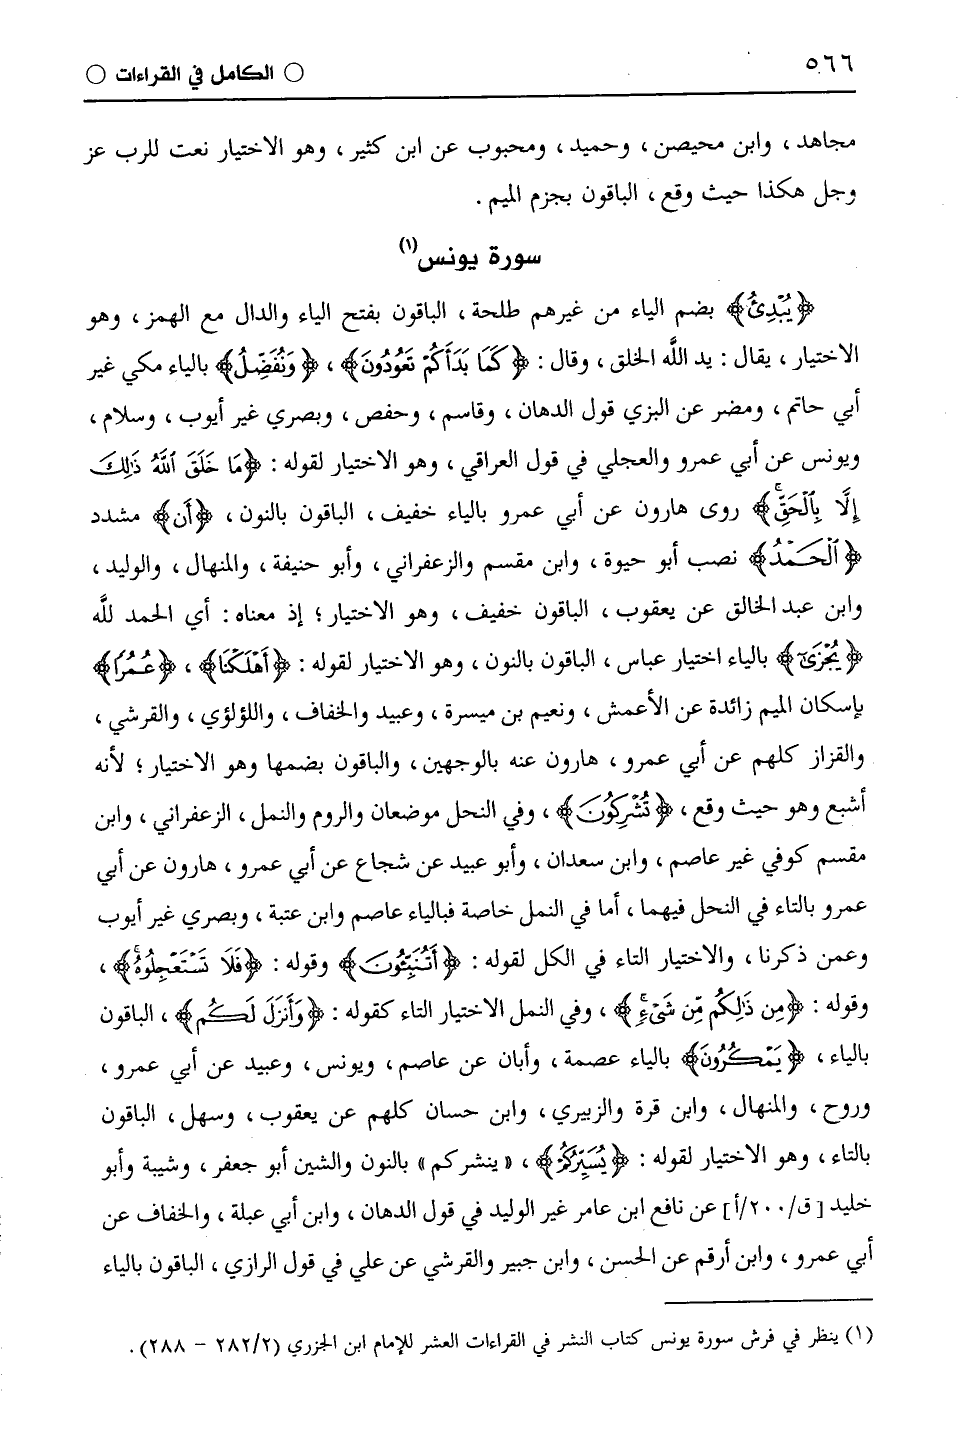 ٥٦٦
○ الكامل في القراءات ○
مجاهد ، وابن محيصن ، وحميد ، ومحبوب عن ابن كثير ، وهو الاختيار نعت للرب عز
وجل هكذا حيث وقع ، الباقون بجزم الميم .
سورة يونس(١)
﴿يُبْدِئُ﴾ بضم الياء من غيرهم طلحة ، الباقون بفتح الياء والدال مع الهمز ، وهو
الاختيار ، يقال : يد اللَّه الخلق ، وقال : ﴿كَمَا بَدَأَكُمْ تَعُودُونَ﴾ ، ﴿وَنُفَضِّلُ﴾ بالياء مكي غير
أبي حاتم ، ومضر عن البزي قول الدهان ، وقاسم ، وحفص ، وبصري غير أيوب ، وسلام ،
ويونس عن أبي عمرو والعجلي في قول العراقي ، وهو الاختيار لقوله : ﴿مَا خَلَقَ ٱللَّهُ ذَٰلِكَ
إِلَّا بِٱلْحَقِّ ۚ﴾ روى هارون عن أبي عمرو بالياء خفيف ، الباقون بالنون ، ﴿أَن﴾ مشدد
﴿ٱلْحَمْدُ﴾ نصب أبو حيوة ، وابن مقسم والزعفراني ، وأبو حنيفة ، والمنهال ، والوليد ،
وابن عبد الخالق عن يعقوب ، الباقون خفيف ، وهو الاختيار ؛ إذ معناه : أي الحمد للَّه
﴿يُجْزَىٰٓ﴾ بالياء اختيار عباس ، الباقون بالنون ، وهو الاختيار لقوله : ﴿أَهْلَكْنَا﴾ ، ﴿عُمُرًا﴾
بإسكان الميم زائدة عن الأعمش ، ونعيم بن ميسرة ، وعبيد والخفاف ، واللؤلؤي ، والقرشي ،
والقزاز كلهم عن أبي عمرو ، هارون عنه بالوجهين ، والباقون بضمها وهو الاختيار ؛ لأنه
أشبع وهو حيث وقع ، ﴿تُشْرِكُونَ﴾ ، وفي النحل موضعان والروم والنمل ، الزعفراني ، وابن
مقسم كوفي غير عاصم ، وابن سعدان ، وأبو عبيد عن شجاع عن أبي عمرو ، هارون عن أبي
عمرو بالتاء في النحل فيهما ، أما في النمل خاصة فبالياء عاصم وابن عتبة ، وبصري غير أيوب
وعمن ذكرنا ، والاختيار التاء في الكل لقوله : ﴿أَتُنَبِّـُٔونَ﴾ وقوله : ﴿فَلَا تَسْتَعْجِلُوهُ ۚ﴾ ،
وقوله : ﴿مِن ذَٰلِكُم مِّن شَىْءٍ ۚ﴾ ، وفي النمل الاختيار التاء كقوله : ﴿وَأَنزَلَ لَكُم﴾ ، الباقون
بالياء ، ﴿يَمْكُرُونَ﴾ بالياء عصمة ، وأبان عن عاصم ، ويونس ، وعبيد عن أبي عمرو ،
وروح ، والمنهال ، وابن قرة والزبيري ، وابن حسان كلهم عن يعقوب ، وسهل ، الباقون
بالتاء ، وهو الاختيار لقوله : ﴿يُسَيِّرُكُمْ﴾ ، « ينشركم » بالنون والشين أبو جعفر ، وشيبة وأبو
خليد [ ق/٢٠٠/أ ] عن نافع ابن عامر غير الوليد في قول الدهان ، وابن أبي عبلة ، والخفاف عن
أبي عمرو ، وابن أرقم عن الحسن ، وابن جبير والقرشي عن علي في قول الرازي ، الباقون بالياء
(١) ينظر في فرش سورة يونس كتاب النشر في القراءات العشر للإمام ابن الجزري (٢٨٢/٢ – ٢٨٨) .